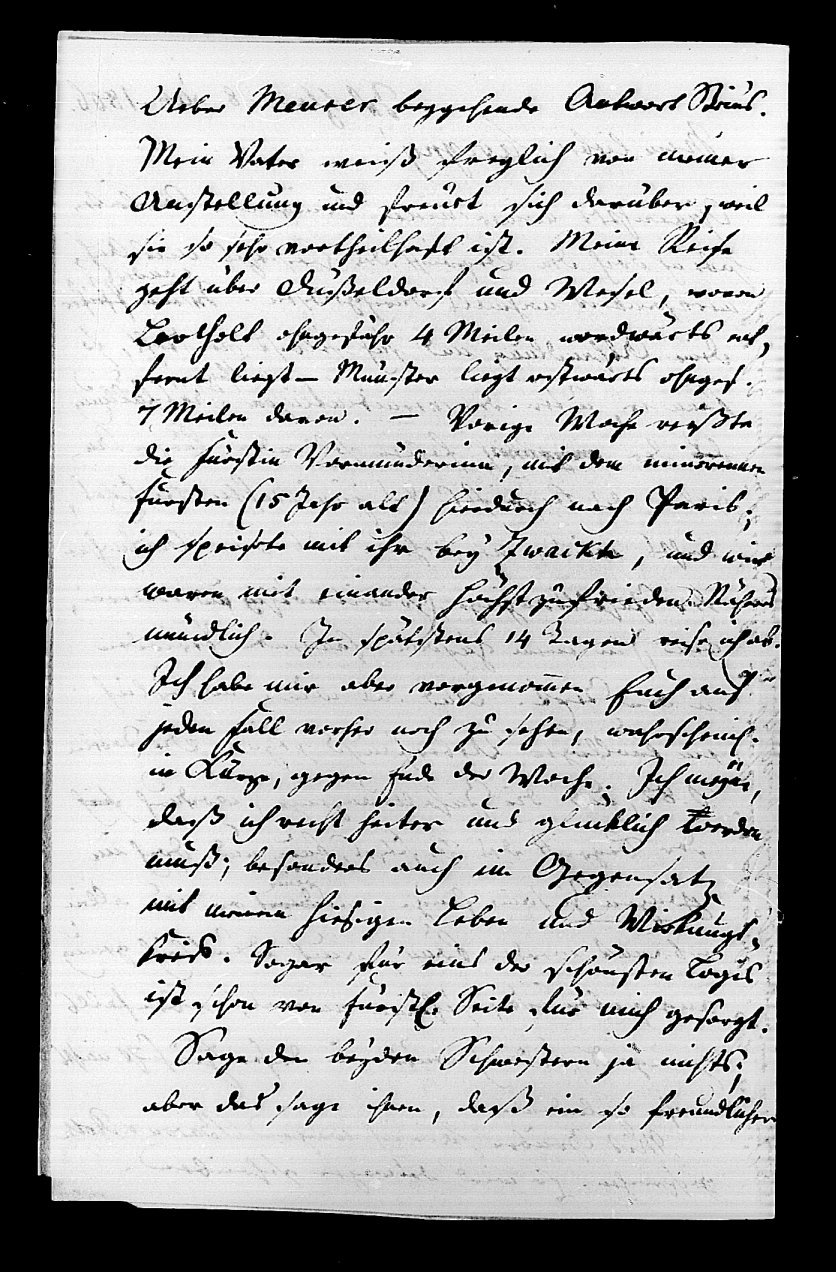 Ueber Meurer beygehende Antwort Strius.
Mein Vater weiß freylich von meiner
Anstellung und freut sich darüber, weil
sie so sehr vortheilhaft ist. Meine Reise
geht über Düßeldorf und Wesel, wovon
ohngefähr 4 Meilen nordwärts ent-
fernt liegt – Münster liegt ostwärts ohngef.
7 Meilen davon. – Vorige Woche reißte
die Fürstin Vormünderinn, mit dem minorennen
Fürsten (15 Jahr alt) hiedurch nach Paris;
ich speiste mit ihr bey, und wir
waren mit einander höchst zufrieden. Näheres
mündlich. In spätstens 14 Tagen reise ich ab.
Ich habe mir aber vorgenom̅en Euch auf
jeden Fall vorher noch zu sehen, wahrscheinl.
in Kürze, gegen Ende der Woche. Ich meyne,
daß ich recht heiter und glücklich werden
muß; besonders auch im Gegensatz
mit meinem hiesigen Leben und Wirkungs-
kreis. Sogar für eins der schönsten Logis
ist schon von Fürstl. Seite für mich gesorgt.
Sage den beyden Schwestern ja nichts;
aber das sage ihnen, daß ein so freundlicher